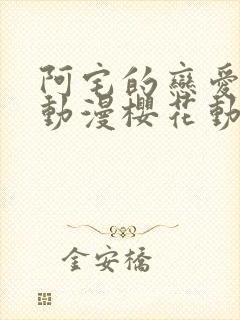 阿宅的戀愛
動漫櫻花動
金安橋